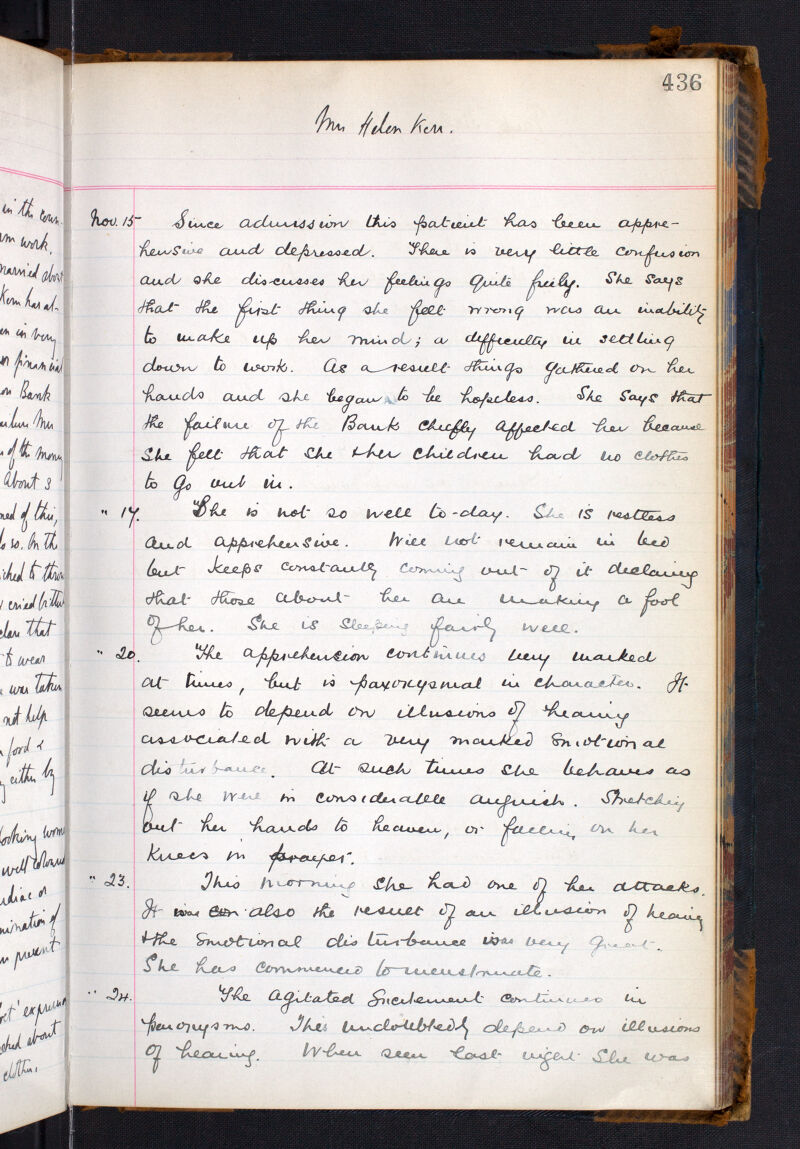 436
Mrs Helen Kerr.
Nov. 15 Since admission this patient has been appre-
hensive and depressed. There is very little confusion
and she discusses her feelings quite freely. She says
that the first thing she felt wrong was an inability
to make up her mind; a difficulty in settling
down to work. As a result things gathered on her
hands and she began to be hopeless. She says that
the failure of the Bank chiefly affected her because
she felt that she & her children had no clothes
to go out in.
" 17. She is not so well to-day. She is restless
and apprehensive. Will not remain in bed
but keeps constantly coming out of it declaring
that those about her are making a fool
of her. She is sleeping fairly well.
" 20. The apprehension continues very marked
at times, but is paroxysmal in character. It
seems to depend on illusions of hearing
associated with a very marked emotional
disturbance. At such times she behaves as
if she were in considerable anguish. Stretching
out her hands to heaven, or falling on her
knees in prayer.
" 23. This morning she had one of her attacks.
It was also the result of an illusion of hearing
& the emotional disturbance was very great.
She has commenced to menstruate.
" 24. The agitated excitement continues in
paroxysms. This undoubtedly depend on illusions
of hearing. When seen last night she was
in the coun-
work.
married about
Kerr has al-
in very
financial
Bank
Mrs
of the money
About 3
of this,
so. On the
to throw
cried bitter
that
to wear
was taken
not help
food &
either by
looking woman
well coloured
cardiac or
of
present
about
clothes.